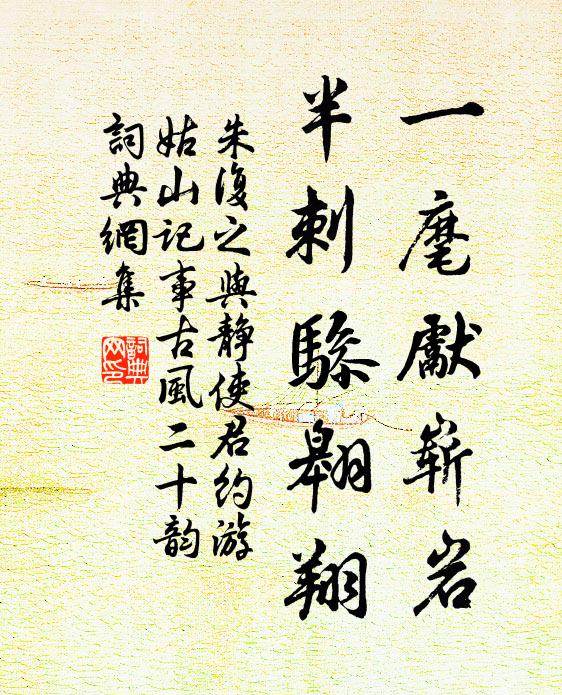 一麾獻嶄岩
半刺驂翱翔
朱復之與靜使君約游
姑山記事古風二十韵
詞典網集